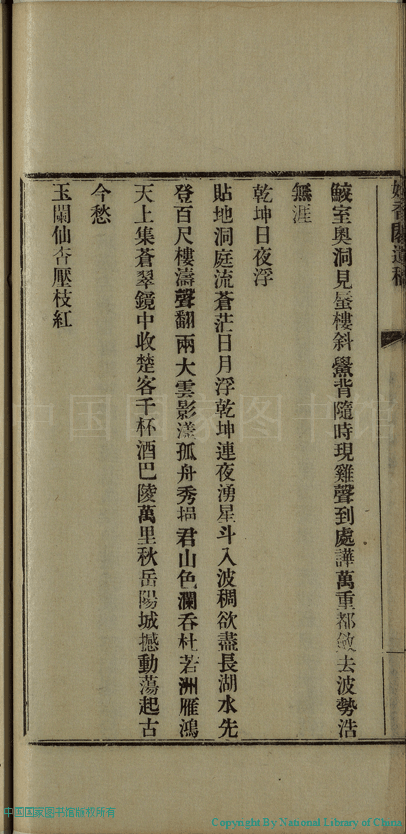 鮫室奧洞見蜃樓斜鱉背隨時現雞聲到處譁萬重都斂去波勢浩
無涯
乾坤日夜浮
貼地洞庭流蒼茫日月浮乾坤連夜湧星斗入波稠欲盡長湖水先
登百尺樓濤聲翻兩大雲影漾孤舟秀挹君山色瀾吞杜若洲雁鴻
天上集蒼翠鏡中收楚客千杯酒巴陵萬里秋岳陽城撼動蕩起古
今愁
玉闌仙杏壓枝紅
中国国家图书馆版权所有
Copyright By National Library of China